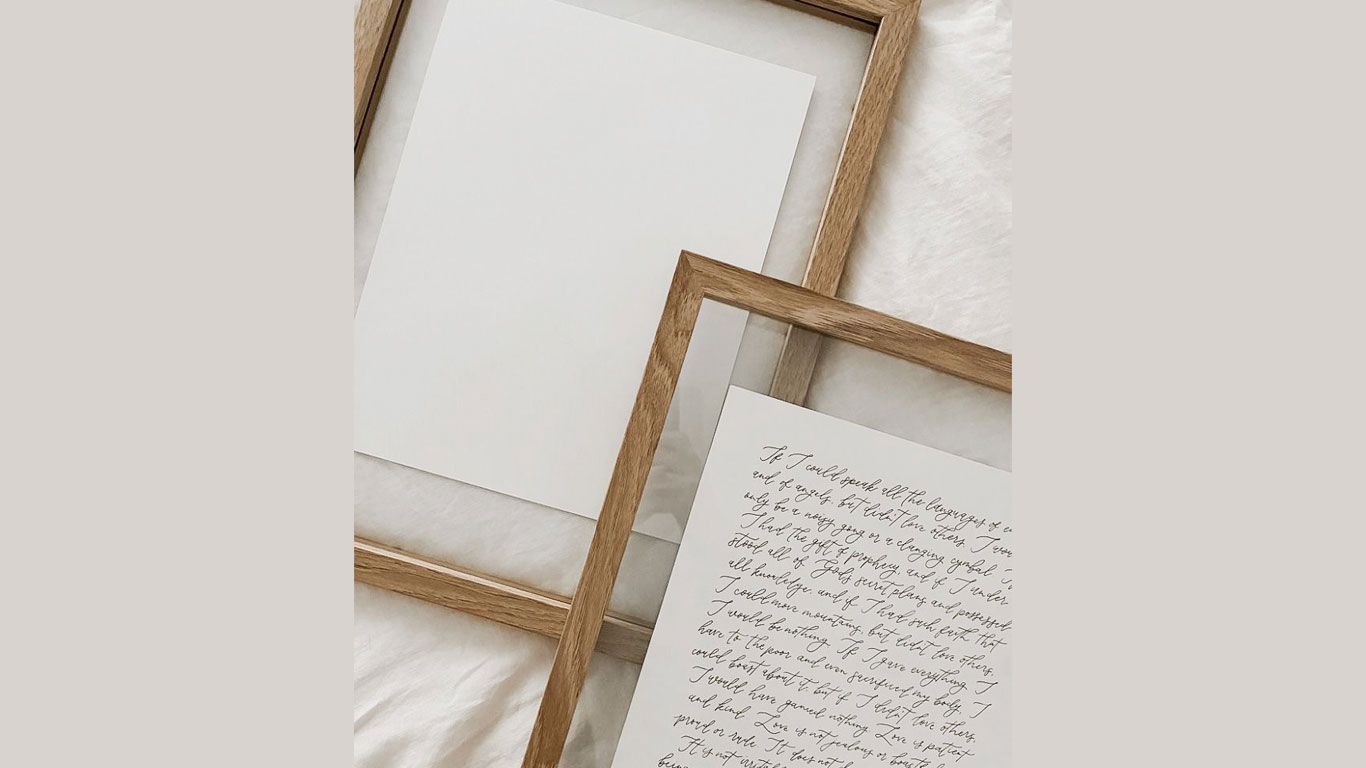 If I could speak all the languages of
and of angels, but didn't love others, I
only be a noisy gong or a clanging cymbal.
I had the gift of prophecy, and if I under
stood all of God's secret plans and possessed
all knowledge, and if I had such faith that
I could move mountains, but didn't love others,
I would be nothing. If I gave everything I
have to the poor and even sacrificed my body, I
could boast about it, but if I didn't love others,
I would have gained nothing. Love is patient
and kind. Love is not jealous or
proud or rude. It does not
It is not